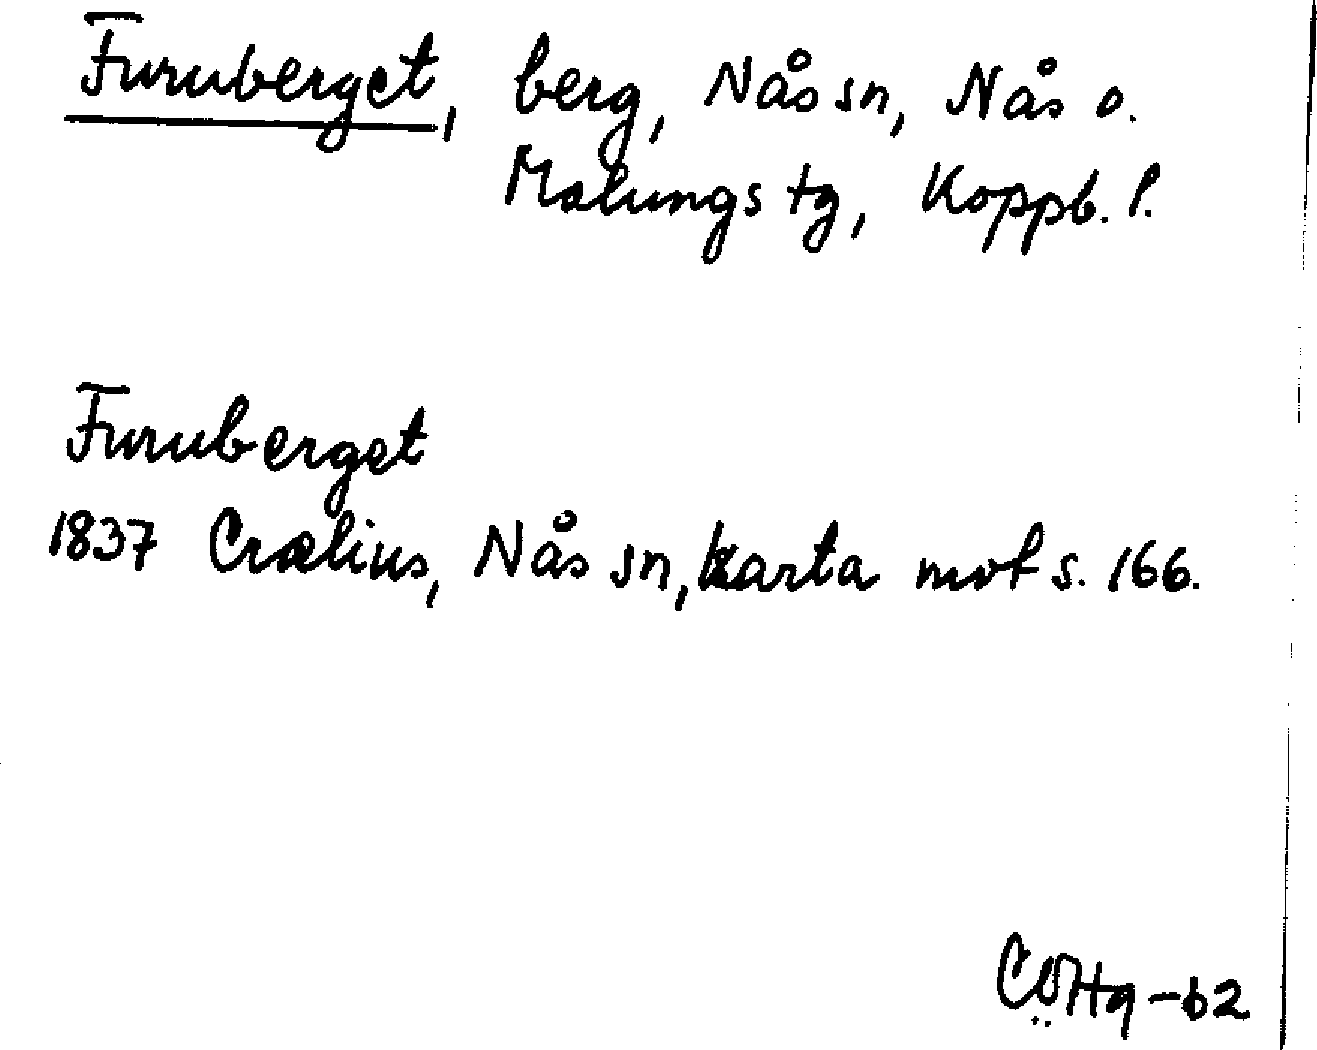 Furuberget, berg, Nås sn, Nås o.
Malungs tg, Koppb. l.
Furuberget
1837 Crælius, Nås sn, karta mot s. 166.
-62